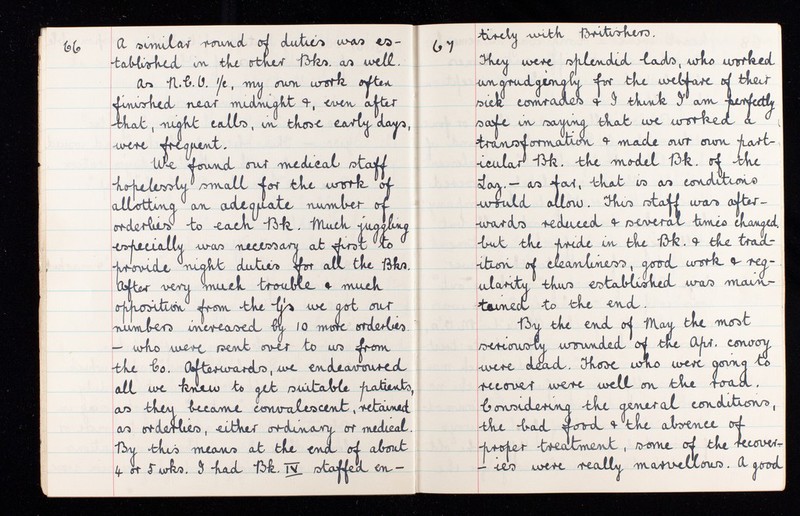 66
A similar round of duties was es-
tablished in the other Bks. as well.
As N.C.O. i/c, my own work often
finished near midnight &, even after
that, night calls, in those early days,
were frequent.
We found our medical staff
hopelessly small for the work of
allotting an adequate number of
orderlies to each Bk. Much juggling
especially was necessary at first to
provide night duties for all the Bks.
After very much trouble & much
opposition from the G's we got our
numbers increased by 10 more orderlies.
- who were sent over to us from
the Co. Afterwards, we endeavoured
all we knew to get suitable patients,
as they became convalescent, retained
as orderlies, either ordinary or medical.
By this means at the end of about
4 or 5 wks. I had Bk. IV staffed en-
67
tirely with Britishers.
They were splendid lads, who worked
ungrudgingly for the welfare of their
sick comrades & I think I am perfectly
safe in saying that we worked a
transformation & made our own part-
icular Bk. the model Bk. of the
Lag. - as far, that is as conditions
would allow. This staff was after-
wards reduced & several times changed,
but the pride in the Bk. & the trad-
ition of cleanliness, good work & reg-
ularity thus established was main-
tained to the end.
By the end of May the most
seriously wounded of the Apr. convoy
were dead. Those who were going to
recover were well on the road.
Considering the general conditions,
the bad food & the absence of
proper treatment, some of the recover-
- ies were really marvellous. A good